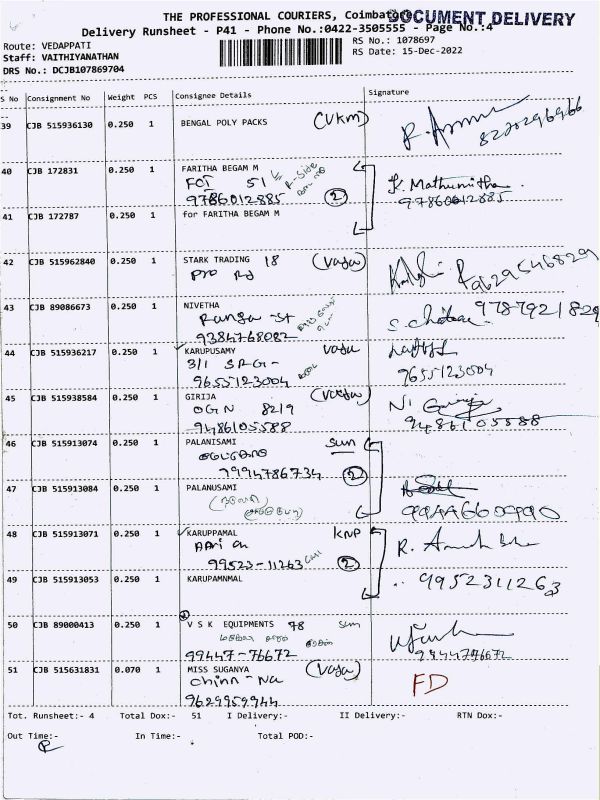 THE PROFESSIONAL COURIERS, Coimbatore
DOCUMENT DELIVERY
Delivery Runsheet - P41 - Phone No.:0422-3505555 - Page No.:4
Route: VEDAPPATI
RS No.: 1078697
Staff: VAITHIYANATHAN
RS Date: 15-Dec-2022
DRS No.: DCJB107869704
S No Consignment No Weight PCS Consignee Details Signature
39 CJB 515936130 0.250 1 BENGAL POLY PACKS (VKM)
40 CJB 172831 0.250 1 FARITHA BEGAM M
FCI 51 R-Side
9786012885 2 K. Mathumitha
9786012885
41 CJB 172787 0.250 1 for FARITHA BEGAM M
42 CJB 515962840 0.250 1 STARK TRADING 18 (vasa)
9629546829
43 CJB 89086673 0.250 1 NIVETHA 9787921829
Ranga St
9384768082
44 CJB 515936217 0.250 1 KARUPUSAMY vasa
3/1 SRG-
9655123004 9655123004
45 CJB 515938584 0.250 1 GIRIJA (vasa)
OGN 8219 N. Girija
9486105588 9486105588
46 CJB 515913074 0.250 1 PALANISAMI sun
9994786734 2
47 CJB 515913084 0.250 1 PALANUSAMI
9944660990
48 CJB 515913071 0.250 1 KARUPPAMAL KNP
99523-11263 2
49 CJB 515913053 0.250 1 KARUPAMNMAL 9952311263
50 CJB 89000413 0.250 1 V S K EQUIPMENTS 78 sun
99447-76672 9944776672
51 CJB 515631831 0.070 1 MISS SUGANYA (vasa)
Chinn-Na FD
9629959944
Tot. Runsheet:- 4 Total Dox:- 51 I Delivery:- II Delivery:- RTN Dox:-
Out Time:- In Time:- Total POD:-